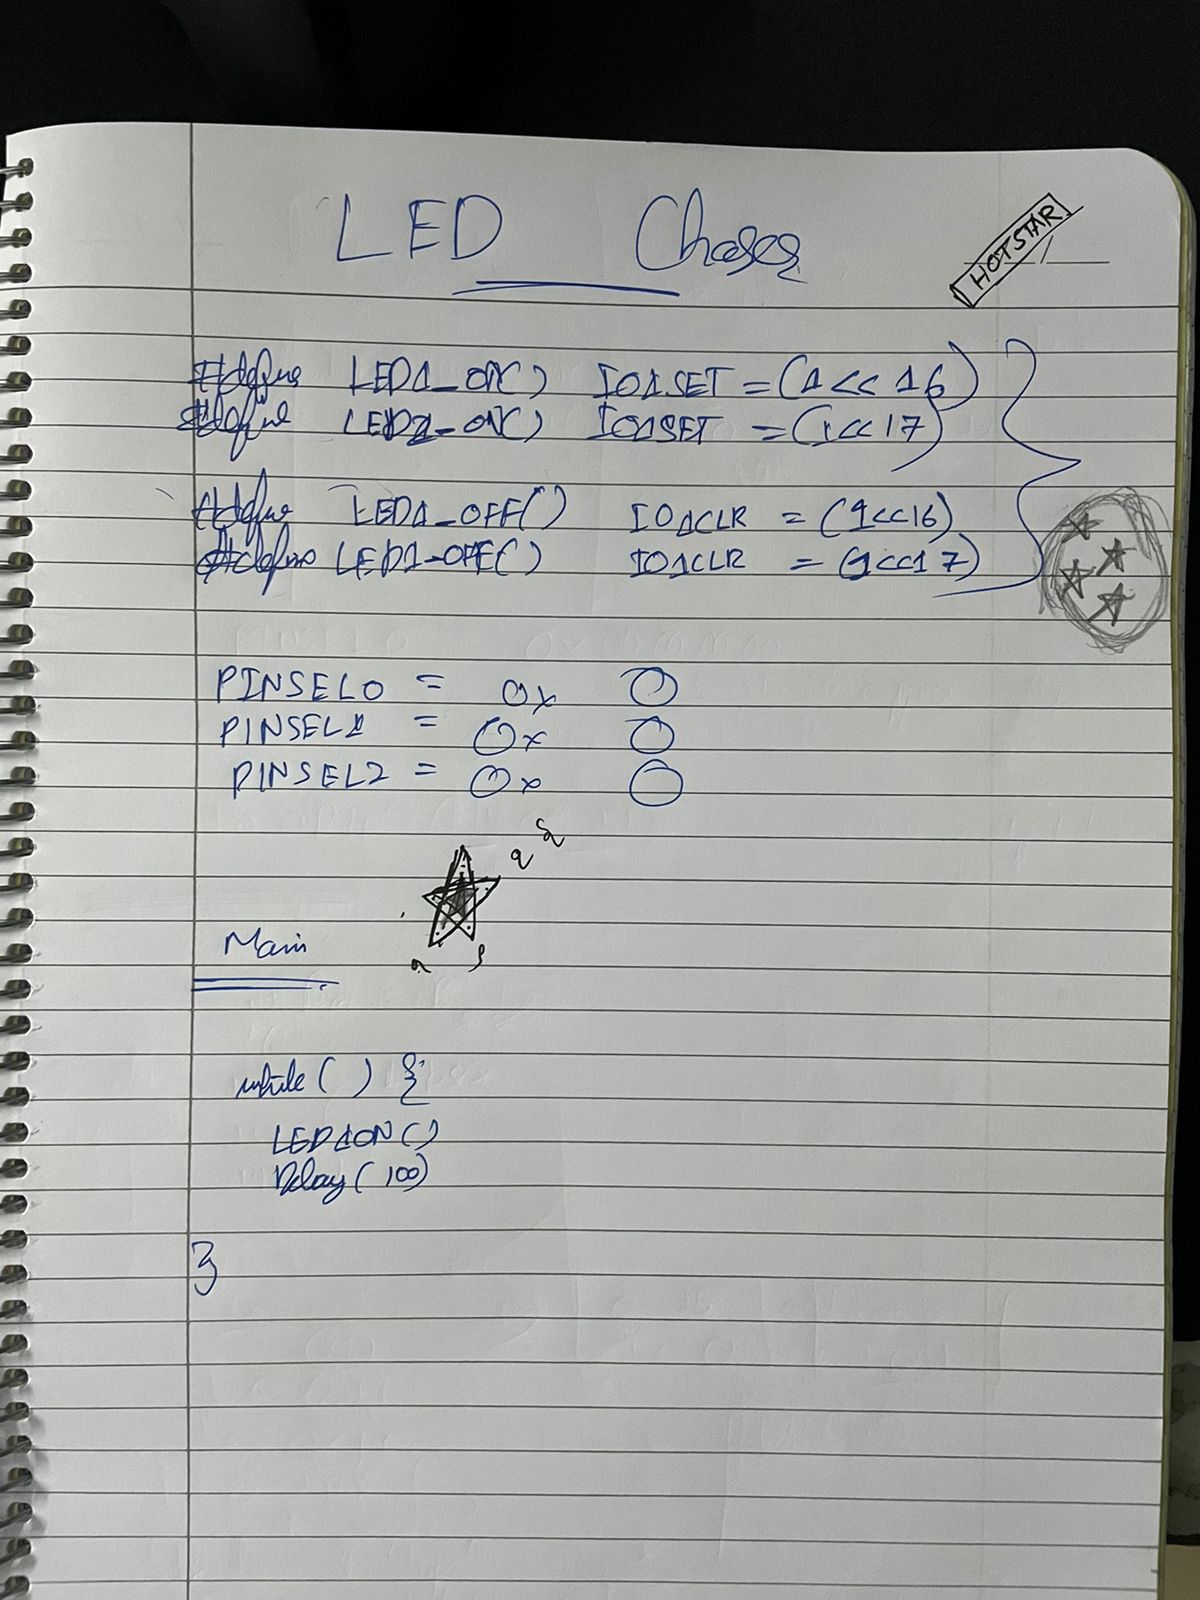 LED Chaser
HOTSTAR
#define LED1_ON() IO1SET = (1<<16)
#define LED2_ON() IO1SET = (1<<17)
#define LED1_OFF() IO1CLR = (1<<16)
#define LED1_OFF() IO1CLR = (1<<17)
PINSEL0 = 0x 0
PINSEL1 = 0x 0
PINSEL2 = 0x 0
Main
while ( ) {
LED1ON()
Delay(100)
}